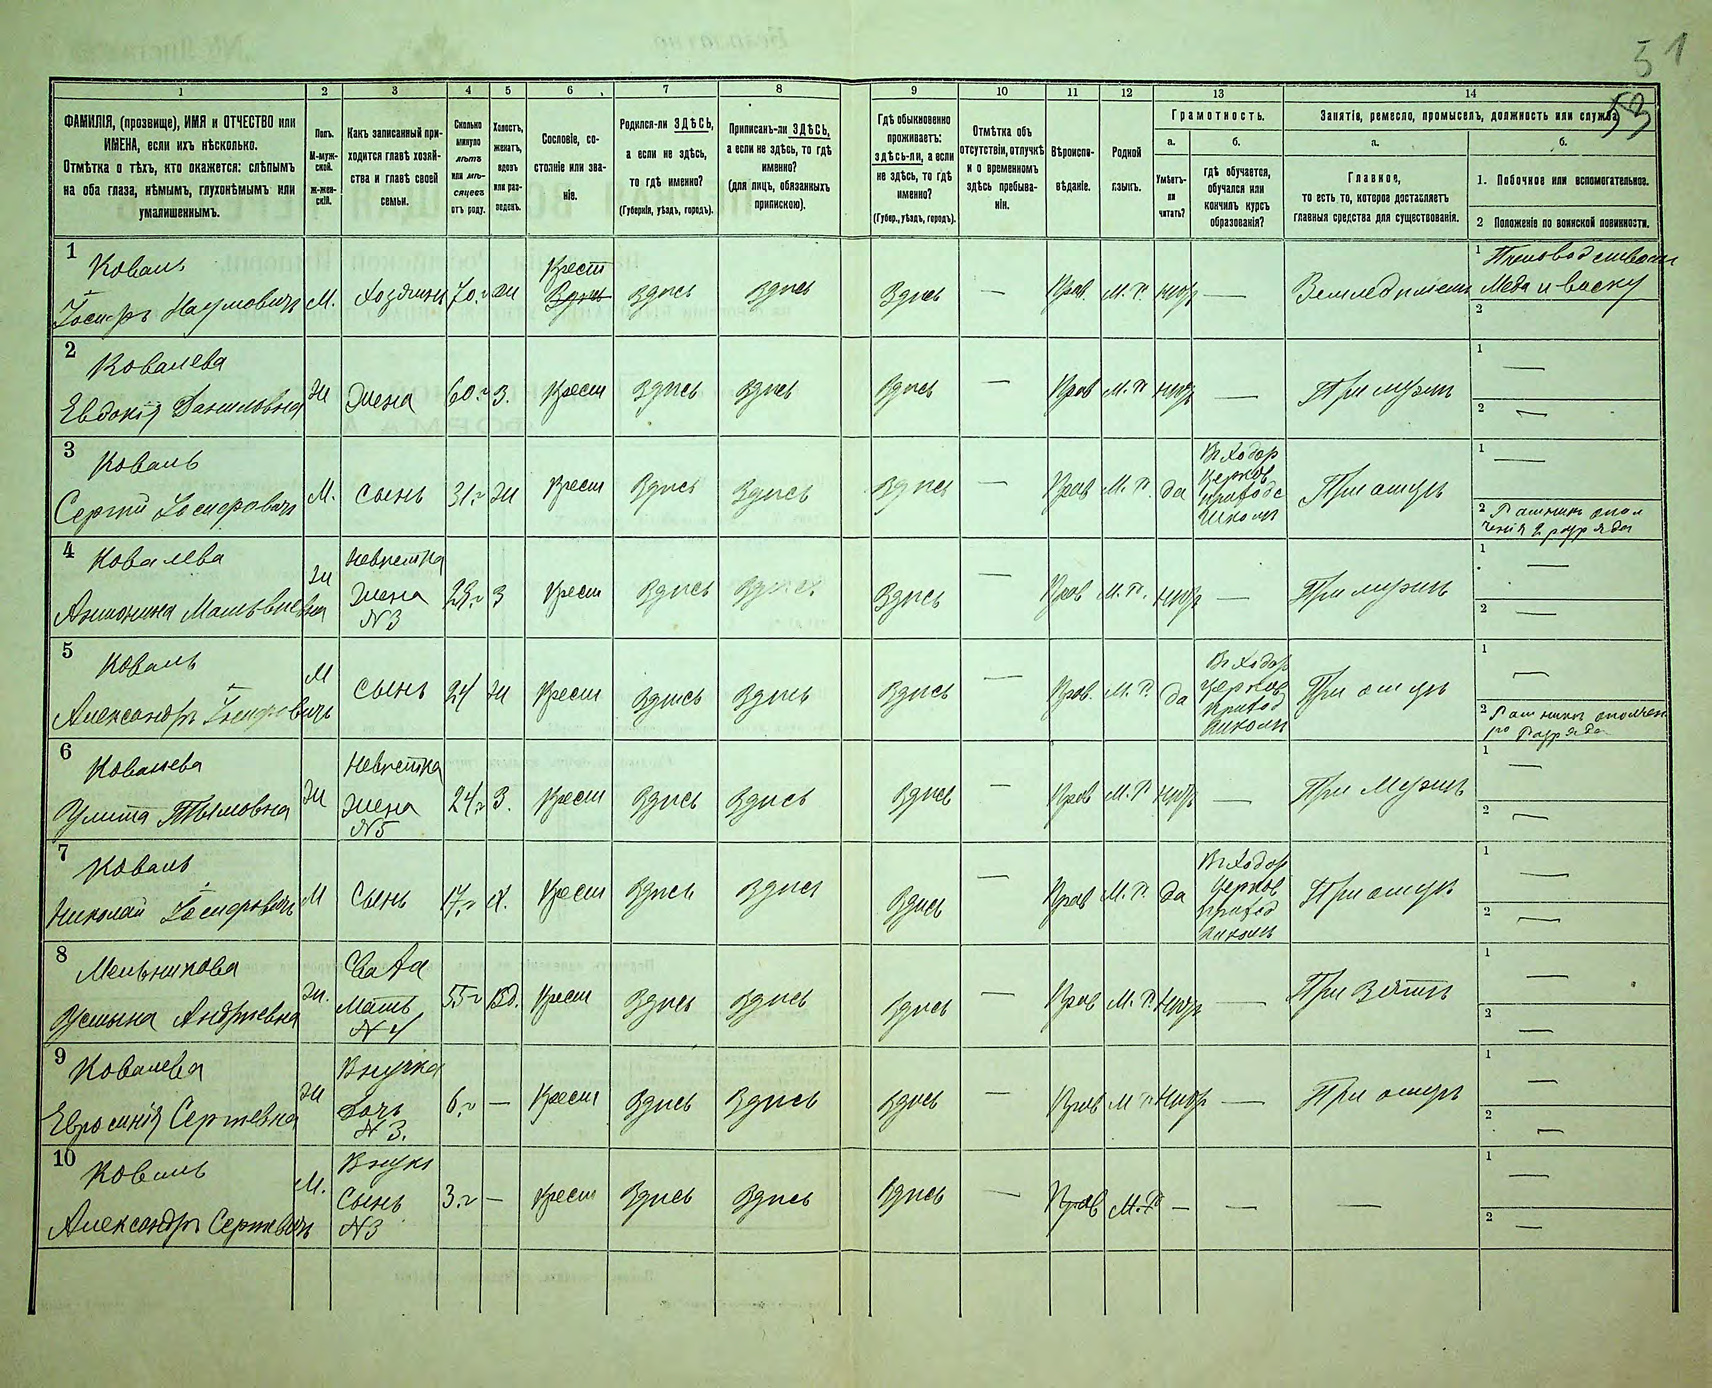 51
53
1 2 3 4 5 6 7 8 9 10 11 12 13 14
ФАМИЛІЯ, (прозвище), ИМЯ и ОТЧЕСТВО или
ИМЕНА, если ихъ нѣсколько.
Отмѣтка о тѣхъ, кто окажется: слѣпымъ
на оба глаза, нѣмымъ, глухонѣмымъ или
умалишеннымъ.
Полъ.
М-муж-
ской.
Ж-жен-
скій.
Какъ записанный при-
ходится главѣ хозяй-
ства и главѣ своей
семьи.
Сколько
минуло
лѣтъ
или мѣ-
сяцевъ
отъ роду.
Холостъ,
женатъ,
вдовъ
или раз-
веденъ.
Сословіе, со-
стояніе или зва-
ніе.
Родился-ли ЗДѢСЬ,
а если не здѣсь,
то гдѣ именно?
(Губернія, уѣздъ, городъ).
Приписанъ-ли ЗДѢСЬ,
а если не здѣсь, то гдѣ
именно?
(для лицъ, обязанныхъ
припискою).
Гдѣ обыкновенно
проживаетъ:
здѣсь-ли, а если
не здѣсь, то гдѣ
именно?
(Губер., уѣздъ, городъ).
Отмѣтка объ
отсутствіи, отлучкѣ
и о временномъ
здѣсь пребыва-
ніи.
Вѣроиспо-
вѣданіе.
Родной
языкъ.
Грамотность.
а.
Умѣетъ-
ли
читать?
б.
гдѣ обучается,
обучался или
кончилъ курсъ
образованія?
Занятіе, ремесло, промыселъ, должность или служба.
а.
Главное,
то есть то, которое доставляетъ
главныя средства для существованія.
б.
1. Побочное или вспомогательное.
2 Положеніе по воинской повинности.
1
Коваль
Іосифъ Наумовичъ
М.
Хозяинъ
70.г
Ж
Крест
Здѣсь
Здѣсь
Здѣсь
Здѣсь
Прав.
М. Р.
нѣтъ
—
Земледѣліе
1 Пчеловодством
Меда и воску
2
2
Ковалева
Евдокія Даниловна
Ж
Жена
60.г
З.
Крест
Здѣсь
Здѣсь
Здѣсь
—
Прав
М. Р
нѣтъ
—
При мужѣ
1 —
2 —
3
Коваль
Сергій Іосифовичъ
М.
Сынъ
31.г
Ж
Крест
Здѣсь
Здѣсь
Здѣсь
—
Прав
М. Р.
да
Въ Ходор
Церков
приход
школѣ
При отцѣ
1 —
2 Ратникъ опол
ченія 2 разряда
4
Ковалева
Антонина Матвѣевна
Ж
Невѣстка
Жена
N3
23.г
З
Крест
Здѣсь
Здѣсь
Здѣсь
—
Прав
М. Р.
нѣтъ
—
При мужѣ
1 —
2 —
5
Коваль
Александръ Іосифовичъ
М
Сынъ
24
Ж
Крест
Здѣсь
Здѣсь
Здѣсь
—
Прав.
М. Р.
да
Въ Ходор
церков
Приход
школѣ
При отцѣ
1 —
2 Ратникъ ополчен
разряда
6
Ковалева
Улита
Ж
Невѣстка
Жена
N5
24.г
З.
Крест
Здѣсь
Здѣсь
Здѣсь
—
Прав
М. Р
нѣтъ
—
При Мужѣ
1 —
2 —
7
Коваль
Николай Іосифовичъ
М
Сынъ
17.г
Х.
Крест
Здѣсь
Здѣсь
Здѣсь
—
Прав
М. Р.
да
Въ Ходор
Церков
Приход
школѣ
При отцѣ
1 —
2 —
8
Мельникова
Устына Андреевна
Ж.
Сваха
Мать
N 4
55.г
Вд.
Крест
Здѣсь
Здѣсь
Здѣсь
—
Прав
М. Р.
Нѣтъ
—
При Зятѣ
1 —
2 —
9
Ковалева
Евросинія Сергѣевна
Ж
Внучка
Дочь
N 3.
6.г
—
Крест
Здѣсь
Здѣсь
Здѣсь
—
Прав
М Р
Нѣтъ
—
При отцѣ
1 —
2 —
10
Коваль
Александръ Сергѣевичъ
М.
Внукъ
Сынъ
N3
3.г
—
Крест
Здѣсь
Здѣсь
Здѣсь
—
Прав
М.Р
—
—
—
1 —
2 —